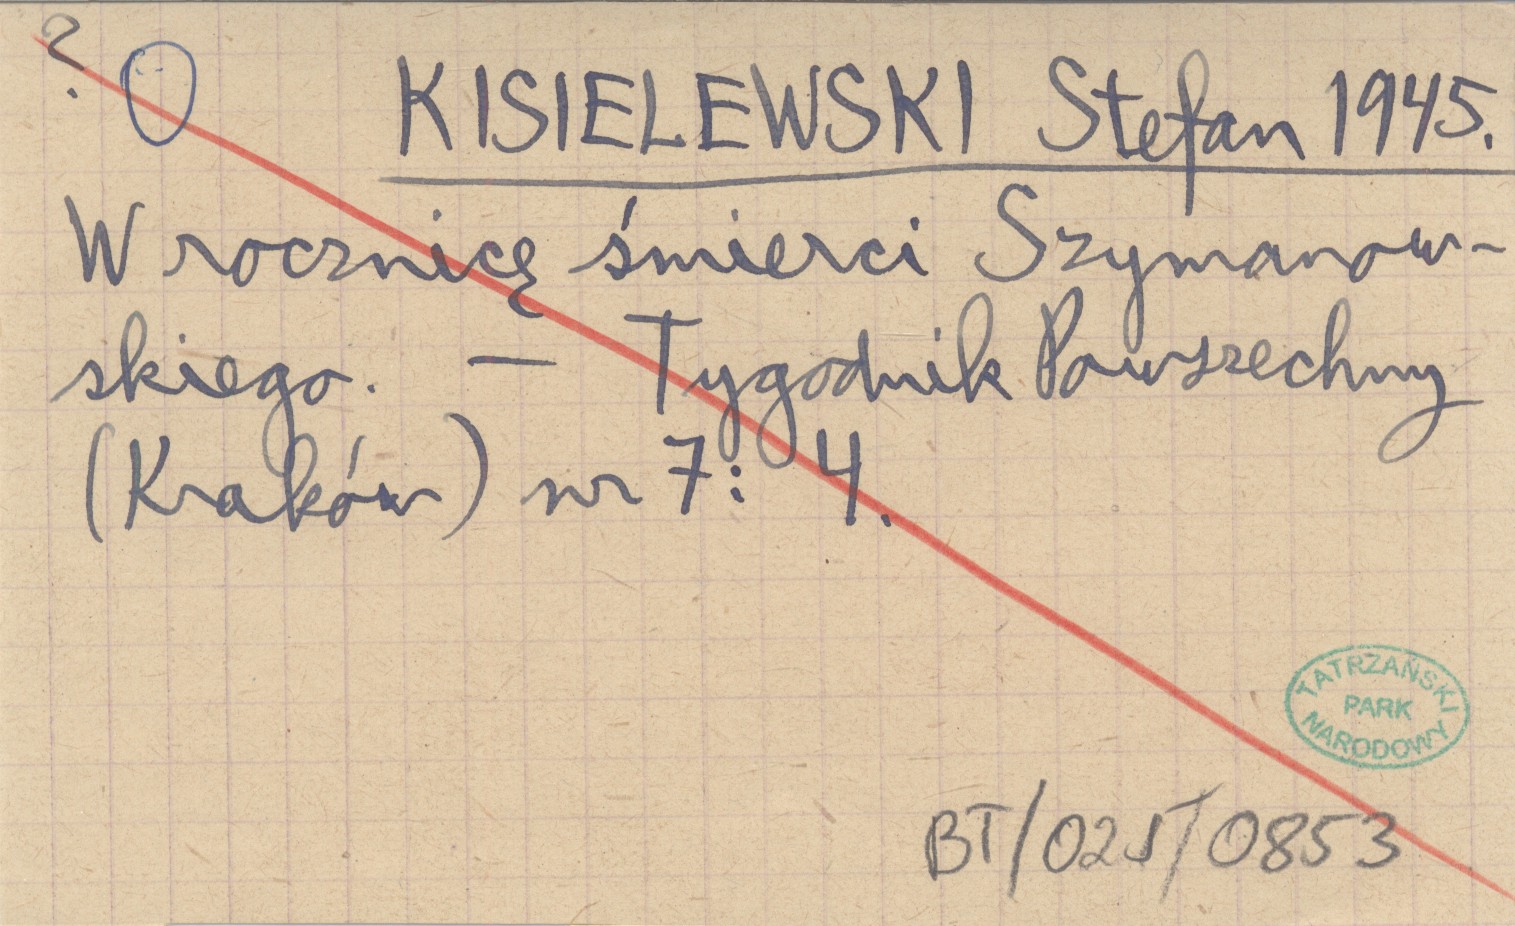 ?
KISIELEWSKI Stefan 1945.
W rocznicę śmierci Szymanow-
skiego. — Tygodnik Powszechny
(Kraków) nr 7: 4.
TATRZAŃSKI
PARK
NARODOWY
BT/025/0853